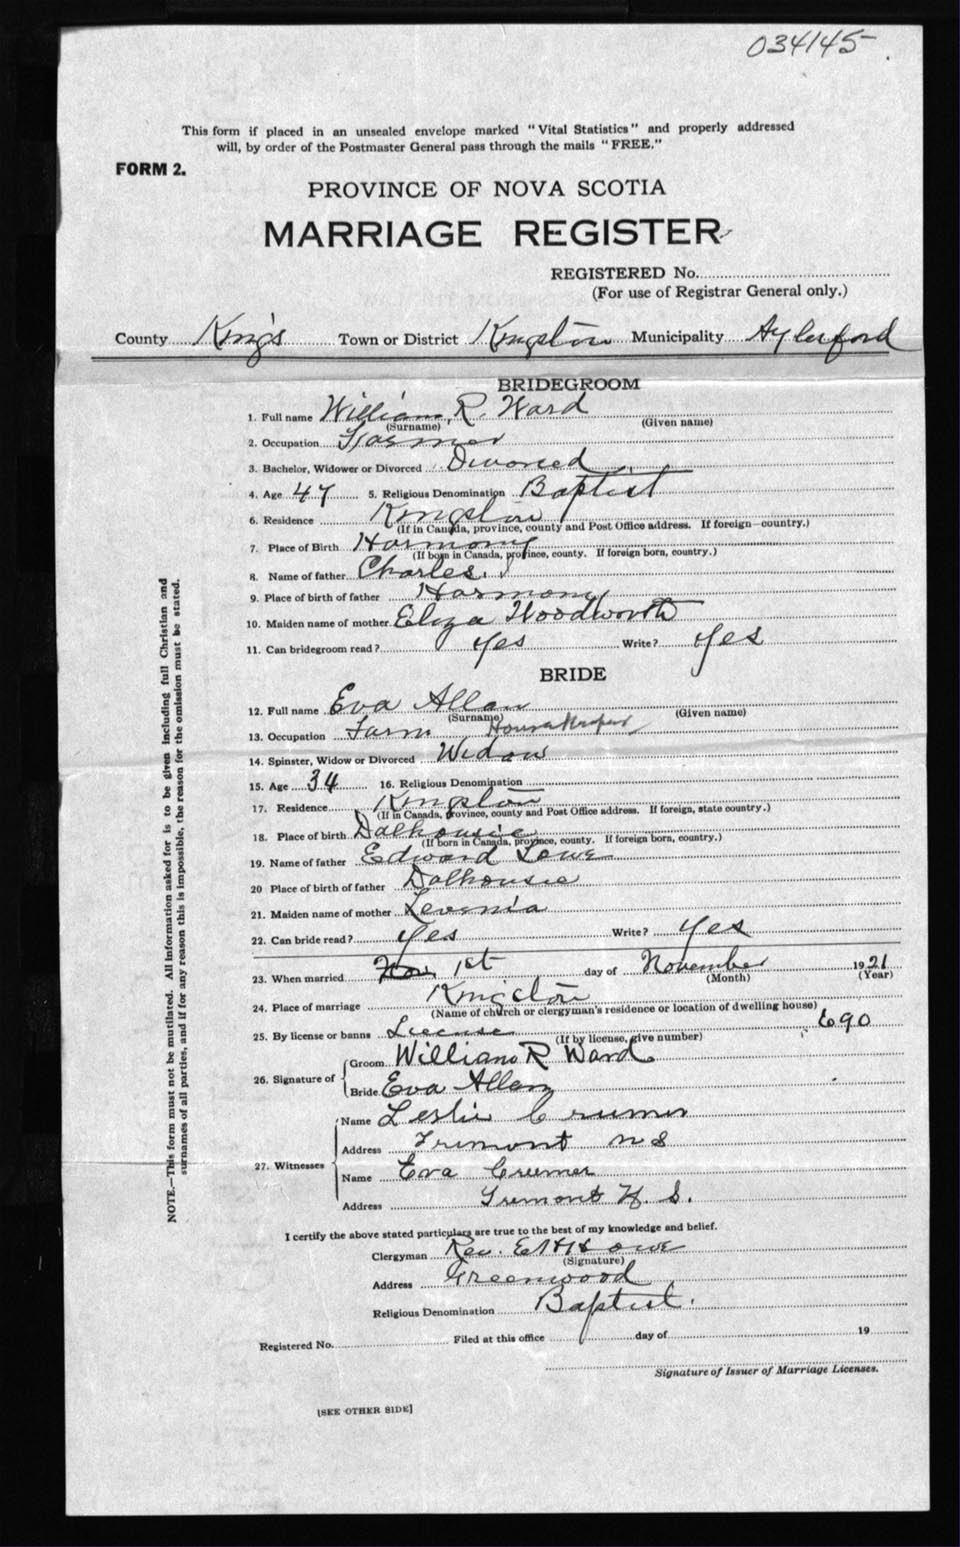 034145
This form if placed in an unsealed envelope marked "Vital Statistics" and properly addressed
will, by order of the Postmaster General pass through the mails "FREE."
FORM 2.
PROVINCE OF NOVA SCOTIA
MARRIAGE REGISTER
REGISTERED No.
(For use of Registrar General only.)
County Kings Town or District Kingston Municipality Aylesford
BRIDEGROOM
1. Full name William R. Ward
(Surname) (Given name)
2. Occupation Farmer
3. Bachelor, Widower or Divorced Divorced
4. Age 47 5. Religious Denomination Baptist
6. Residence Kingston
(If in Canada, province, county and Post Office address. If foreign—country.)
7. Place of Birth Harmony
(If born in Canada, province, county. If foreign born, country.)
8. Name of father Charles
9. Place of birth of father Harmony
10. Maiden name of mother Eliza Woodworth
11. Can bridegroom read? Yes Write? Yes
BRIDE
12. Full name Eva Allan
(Surname) (Given name)
13. Occupation Farm Housekeeper
14. Spinster, Widow or Divorced Widow
15. Age 34 16. Religious Denomination
17. Residence Kingston
(If in Canada, province, county and Post Office address. If foreign, state country.)
18. Place of birth Dalhousie
(If born in Canada, province, county. If foreign born, country.)
19. Name of father Edward Lowe
20 Place of birth of father Dalhousie
21. Maiden name of mother Levenia
22. Can bride read? Yes Write? Yes
23. When married 1st day of November 1921
(Month) (Year)
24. Place of marriage Kingston
(Name of church or clergyman's residence or location of dwelling house)
25. By license or banns License 690
(If by license, give number)
26. Signature of Groom William R Ward
Bride Eva Allan
27. Witnesses Name Leslie Crumer
Address Tremont N S
Name Eva Crumer
Address Tremont N. S.
I certify the above stated particulars are true to the best of my knowledge and belief.
Clergyman Rev. E H Howe
(Signature)
Address Greenwood
Religious Denomination Baptist.
Registered No. Filed at this office day of 19
Signature of Issuer of Marriage Licenses.
[SEE OTHER SIDE]
NOTE.—This form must not be mutilated. All information asked for is to be given including full Christian and
surnames of all parties, and if for any reason this is impossible, the reason for the omission must be stated.